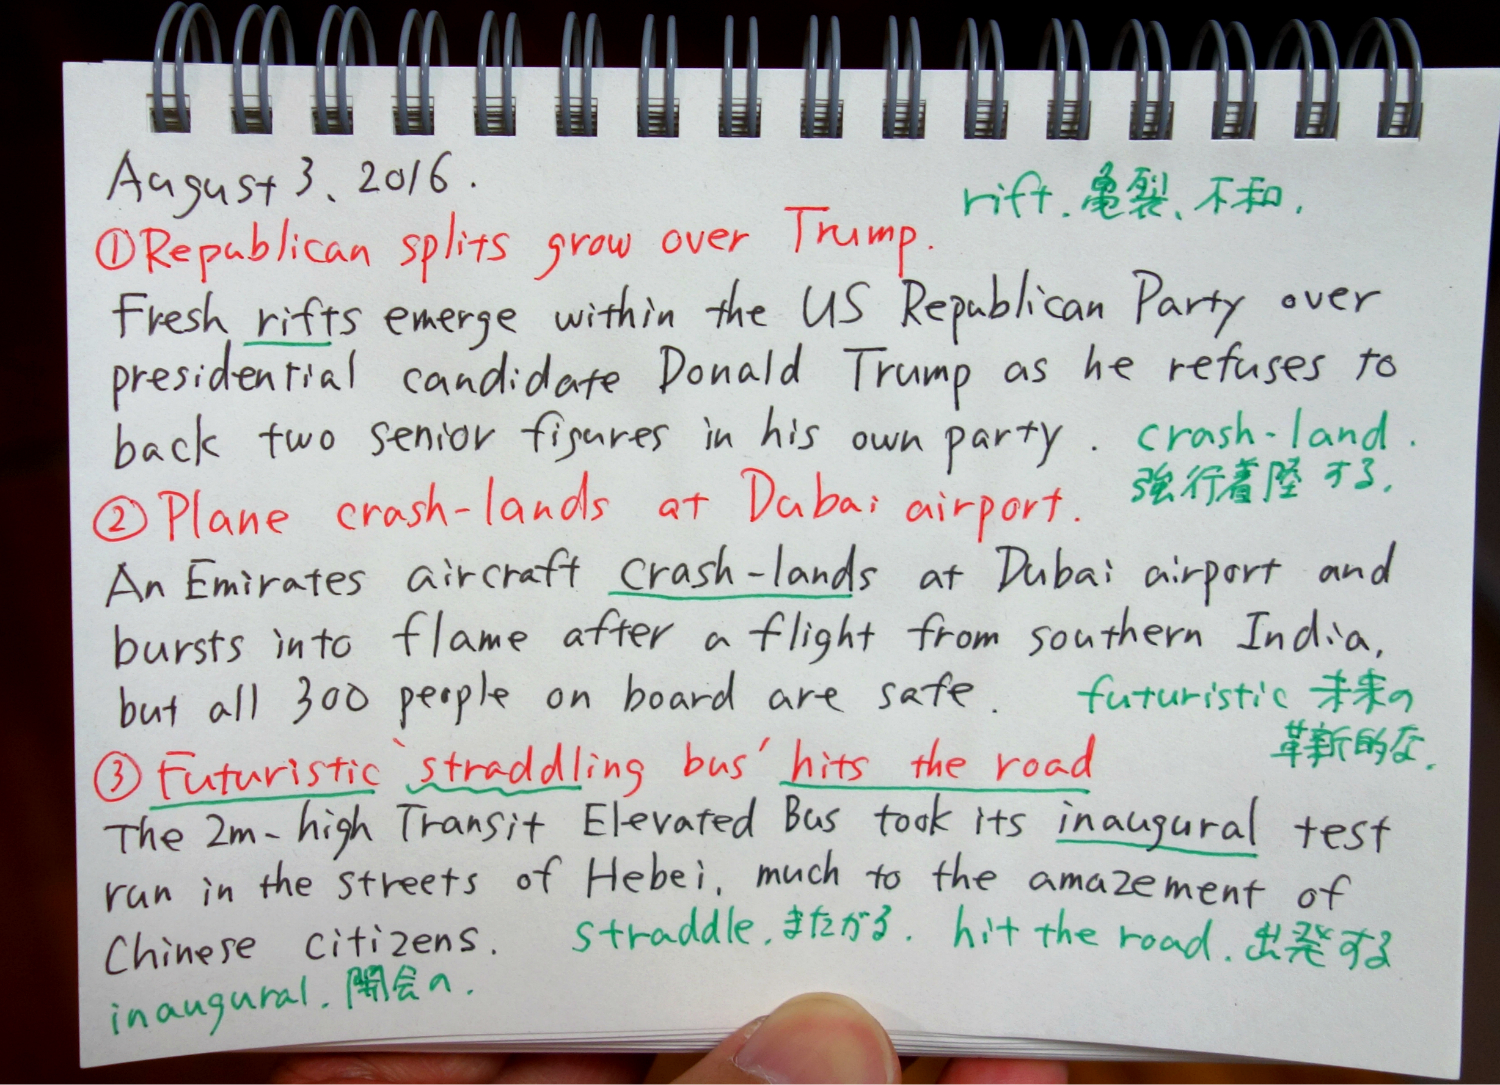 August 3、2016.
rift. 亀裂、不和.
①Republican splits grow over Trump.
Fresh rifts emerge within the US Republican Party over
presidential candidate Donald Trump as he refuses to
back two senior figures in his own party.
crash-land.
強行着陸する.
②Plane crash-lands at Dubai airport.
An Emirates aircraft crash-lands at Dubai airport and
bursts into flame after a flight from southern India,
but all 300 people on board are safe.
futuristic 未来の
革新的な.
③Futuristic ‘straddling bus’ hits the road
The 2m-high Transit Elevated Bus took its inaugural test
run in the streets of Hebei, much to the amazement of
Chinese citizens.
straddle. またがる. hit the road. 出発する
inaugural. 開会の.